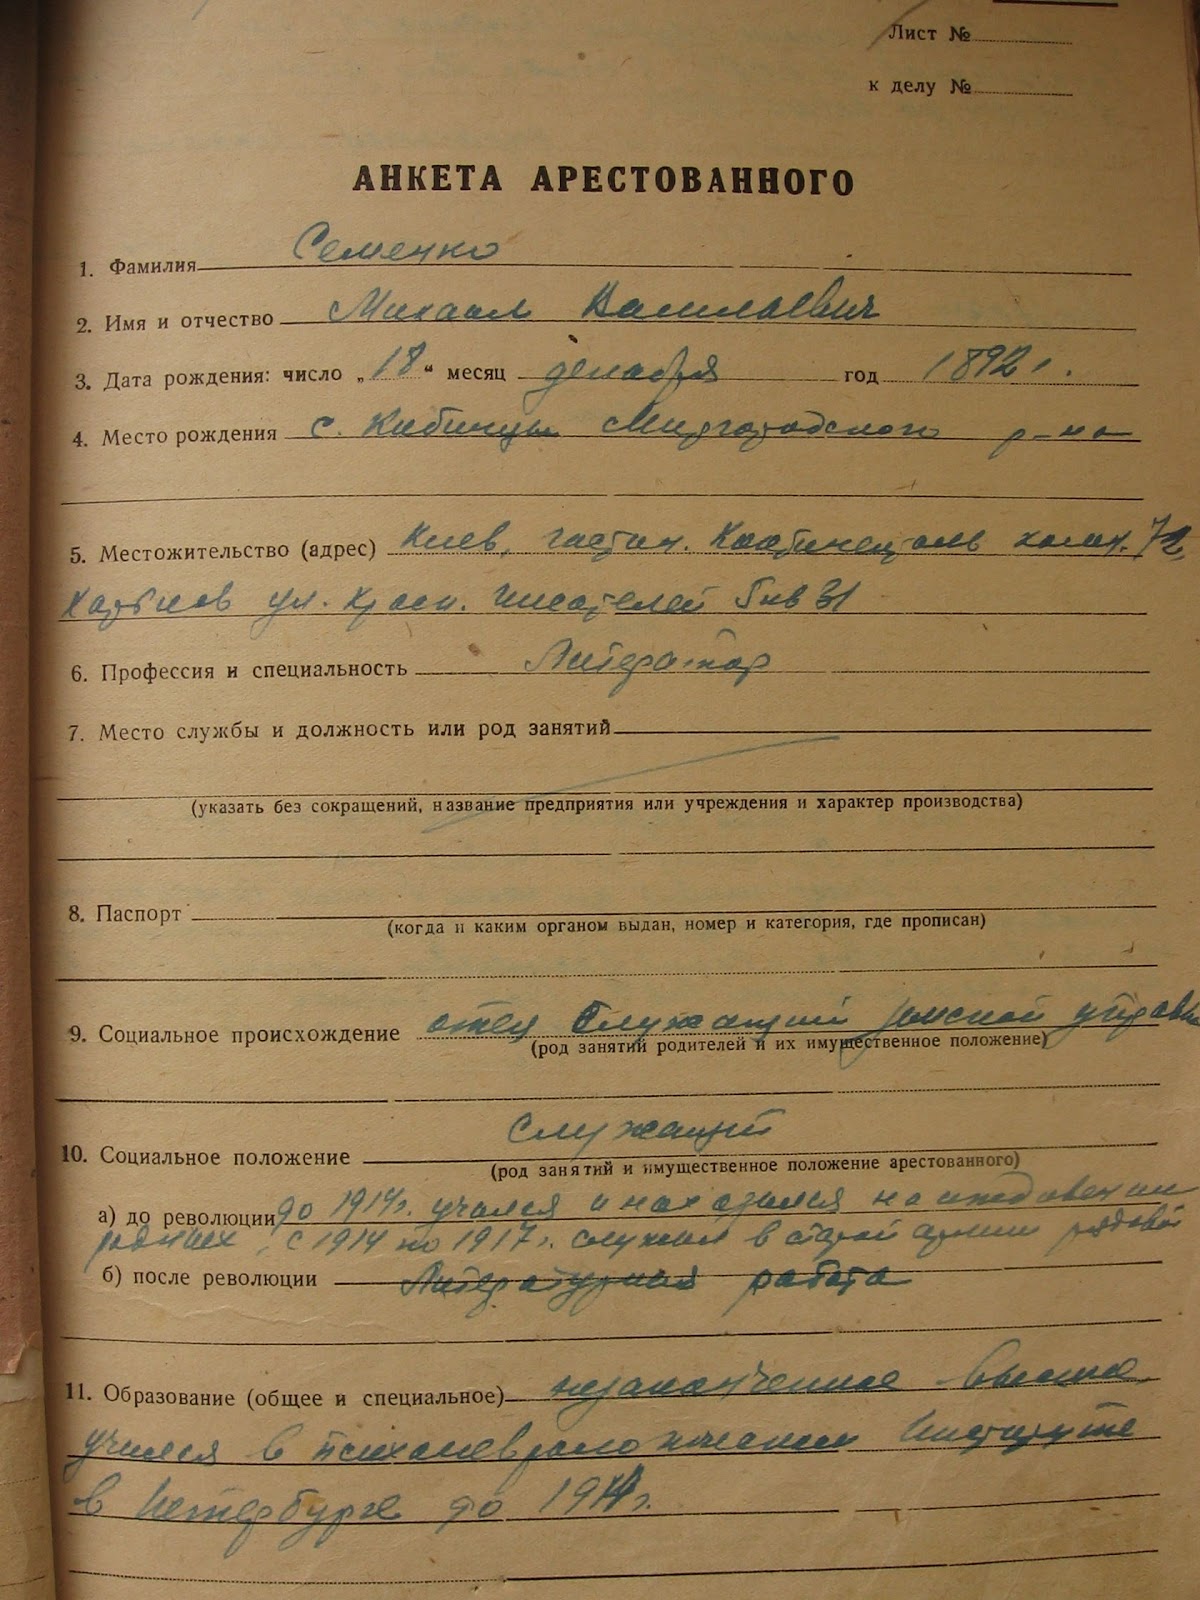 Лист №
к делу №
АНКЕТА АРЕСТОВАННОГО
1. Фамилия Семенко
2. Имя и отчество Михаил Васильевич
3. Дата рождения: число „18“ месяц декабря год 1892 г.
4. Место рождения с. Кибинцы Миргородского р-на
5. Местожительство (адрес) Киев, гостин. Континенталь комн. 72,
Харьков ул. Красн. Писателей 5 кв 31
6. Профессия и специальность Литератор
7. Место службы и должность или род занятий
(указать без сокращений, название предприятия или учреждения и характер производства)
8. Паспорт
(когда и каким органом выдан, номер и категория, где прописан)
9. Социальное происхождение отец служащий земской управы
(род занятий родителей и их имущественное положение)
10. Социальное положение служащий
(род занятий и имущественное положение арестованного)
а) до революции до 1914г. учился и находился на иждивении
родных, с 1914 по 1917г. служил в старой армии рядовой
б) после революции Литературная работа
11. Образование (общее и специальное) незаконченное высшее
учился в психоневрологическом Институте
в Петербурге до 1914г.